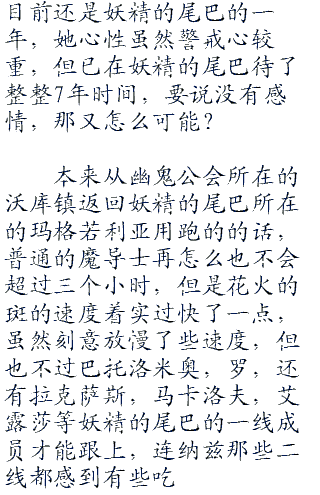 目前还是妖精的尾巴的一
年，她心性虽然警戒心较
重，但已在妖精的尾巴待了
整整7年时间，要说没有感
情，那又怎么可能？
本来从幽鬼公会所在的
沃库镇返回妖精的尾巴所在
的玛格若利亚用跑的的话，
普通的魔导士再怎么也不会
超过三个小时，但是花火的
斑的速度着实过快了一点，
虽然刻意放慢了些速度，但
也不过巴托洛米奥，罗，还
有拉克萨斯，马卡洛夫，艾
露莎等妖精的尾巴的一线成
员才能跟上，连纳兹那些二
线都感到有些吃